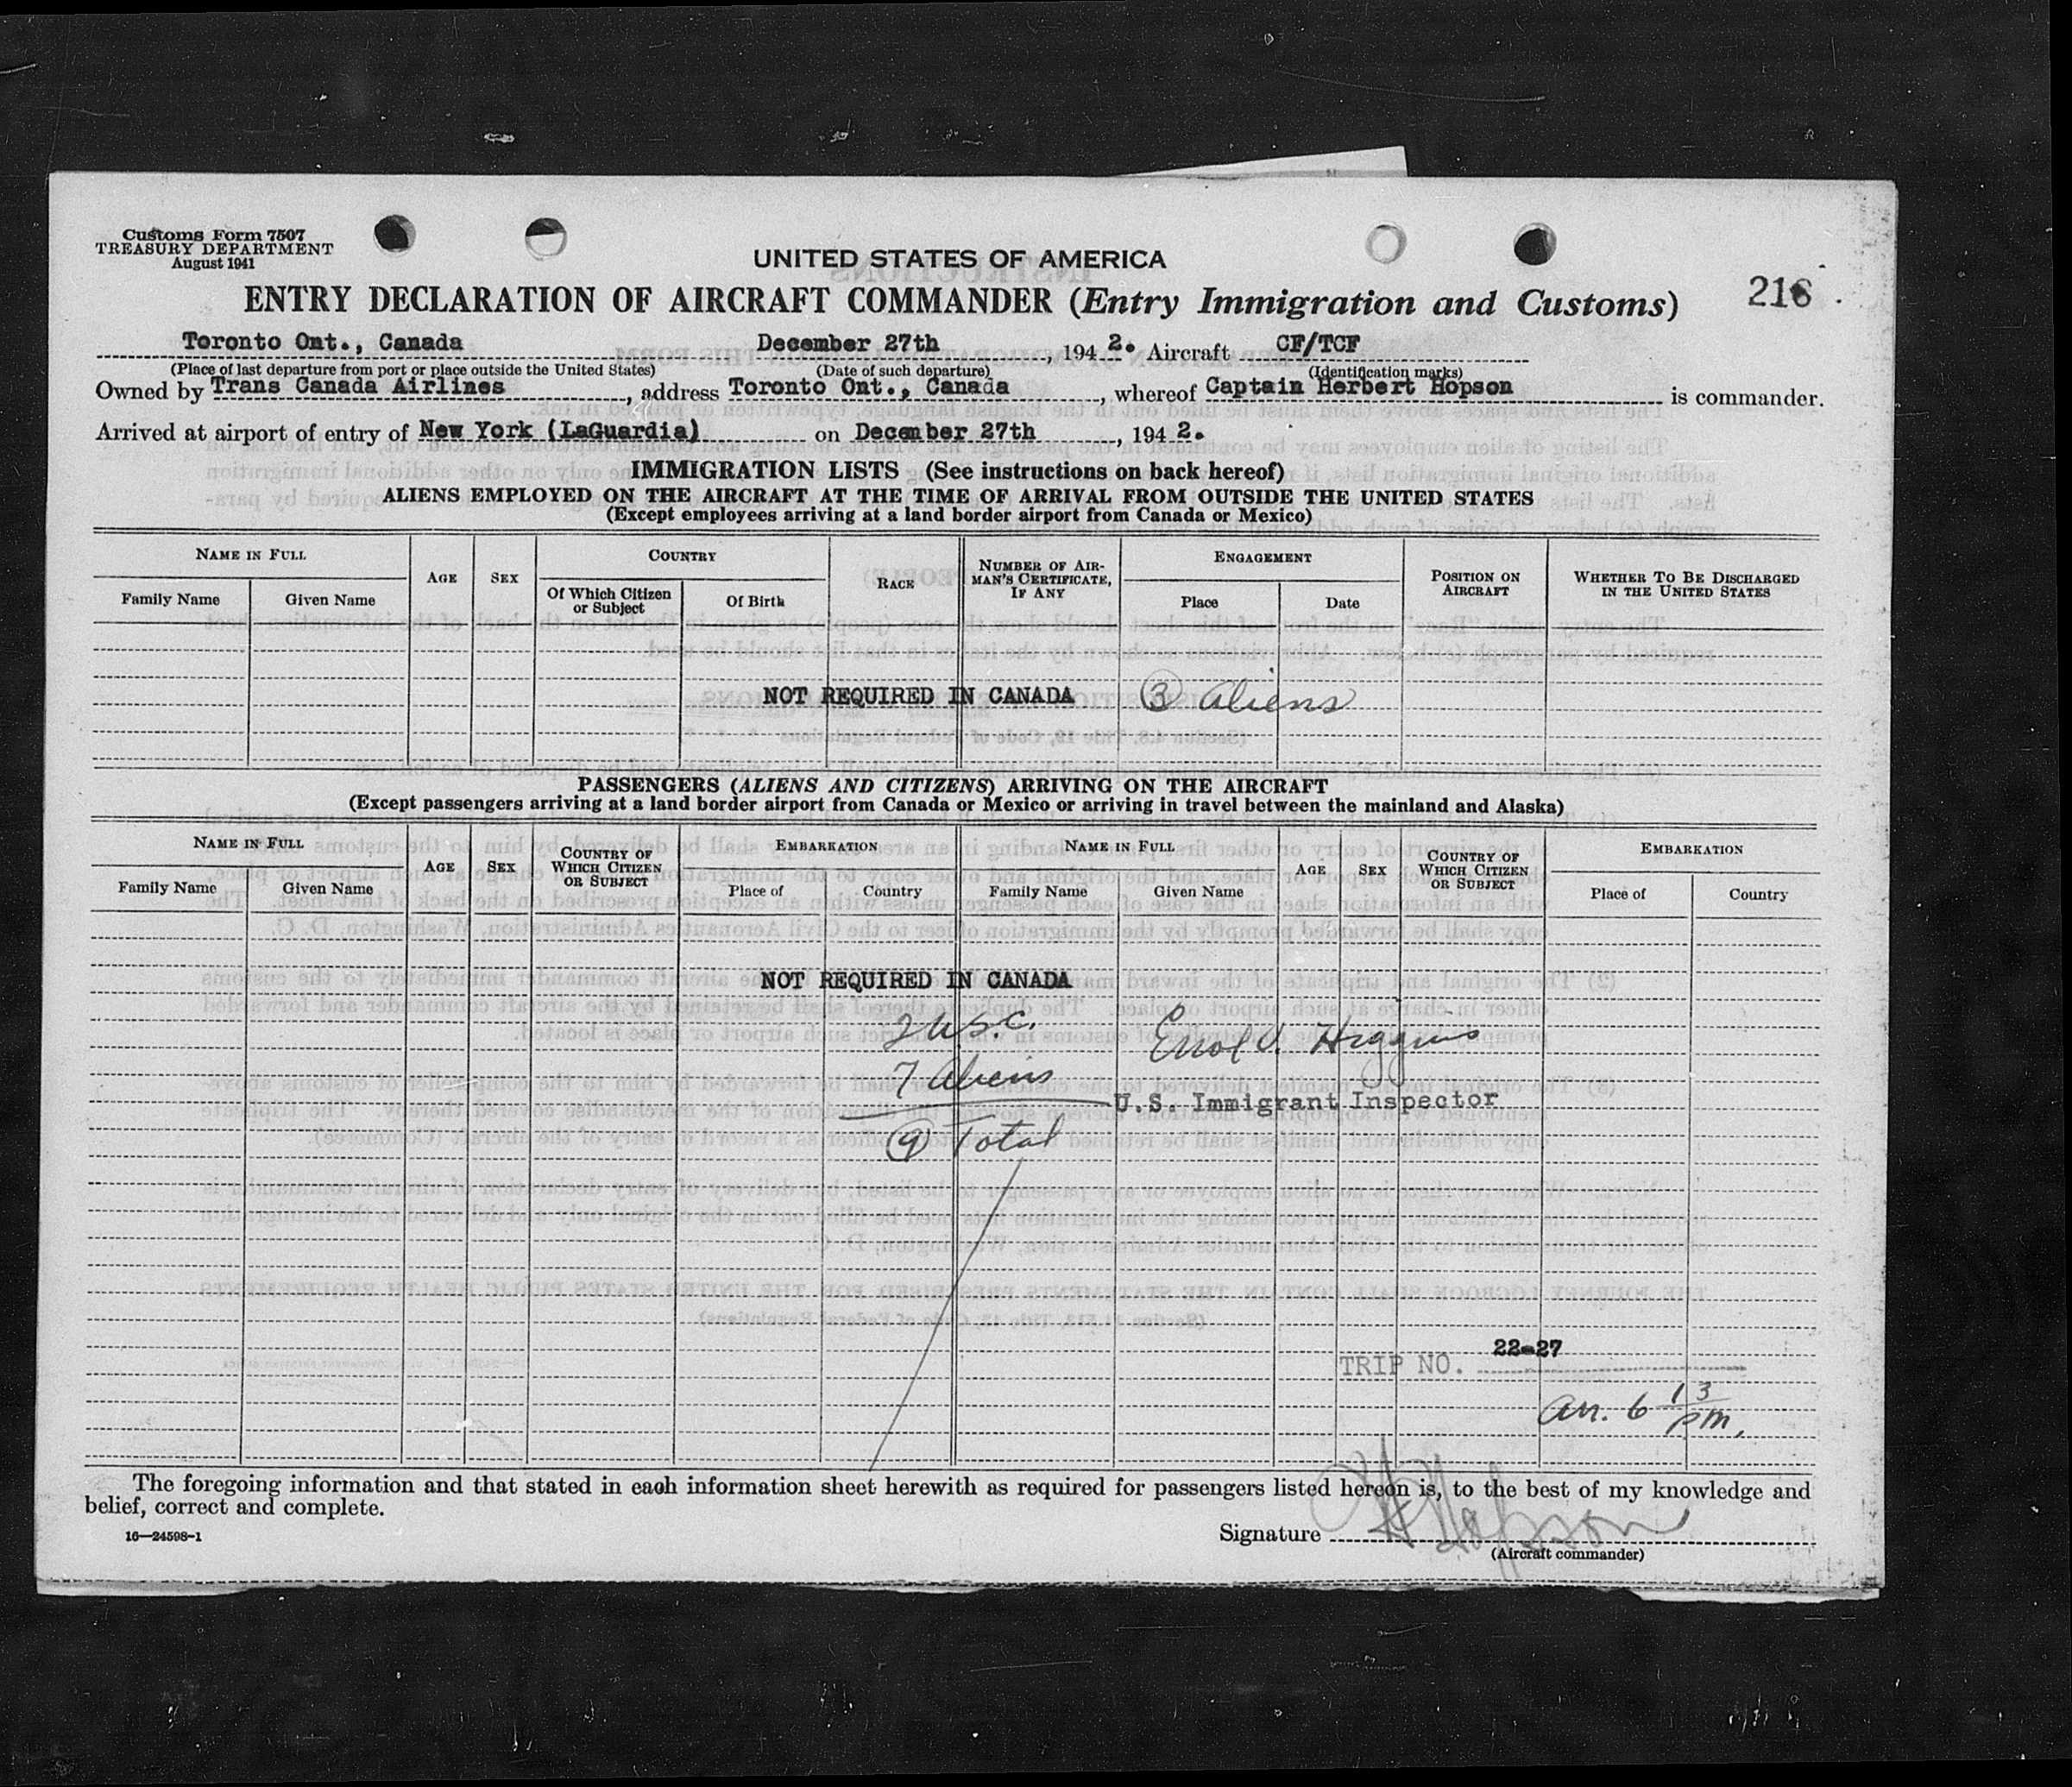 Customs Form 7507
TREASURY DEPARTMENT
August 1941
UNITED STATES OF AMERICA
ENTRY DECLARATION OF AIRCRAFT COMMANDER (Entry Immigration and Customs)
Toronto Ont., Canada December 27th, 194 2. Aircraft CF/TCF
(Place of last departure from port or place outside the United States) (Date of such departure) (Identification marks)
Owned by Trans Canada Airlines, address Toronto Ont., Canada, whereof Captain Herbert Hopson is commander.
Arrived at airport of entry of New York (LaGuardia) on December 27th, 194 2.
IMMIGRATION LISTS (See instructions on back hereof)
ALIENS EMPLOYED ON THE AIRCRAFT AT THE TIME OF ARRIVAL FROM OUTSIDE THE UNITED STATES
(Except employees arriving at a land border airport from Canada or Mexico)
NAME IN FULL AGE SEX COUNTRY RACE NUMBER OF AIRMAN'S CERTIFICATE, IF ANY ENGAGEMENT POSITION ON AIRCRAFT WHETHER TO BE DISCHARGED IN THE UNITED STATES
Family Name Given Name Of Which Citizen or Subject Of Birth Place Date
NOT REQUIRED IN CANADA 3 Aliens
PASSENGERS (ALIENS AND CITIZENS) ARRIVING ON THE AIRCRAFT
(Except passengers arriving at a land border airport from Canada or Mexico or arriving in travel between the mainland and Alaska)
NAME IN FULL AGE SEX COUNTRY OF WHICH CITIZEN OR SUBJECT EMBARKATION NAME IN FULL AGE SEX COUNTRY OF WHICH CITIZEN OR SUBJECT EMBARKATION
Family Name Given Name Place of Country Family Name Given Name Place of Country
NOT REQUIRED IN CANADA
2 U.S.C. Errol V. Higgins
7 Aliens
U.S. Immigrant Inspector
9 Total
TRIP NO. 22-27
Arr. 6 13 pm.
The foregoing information and that stated in each information sheet herewith as required for passengers listed hereon is, to the best of my knowledge and
belief, correct and complete.
16—24598-1
Signature H Hopson
(Aircraft commander)